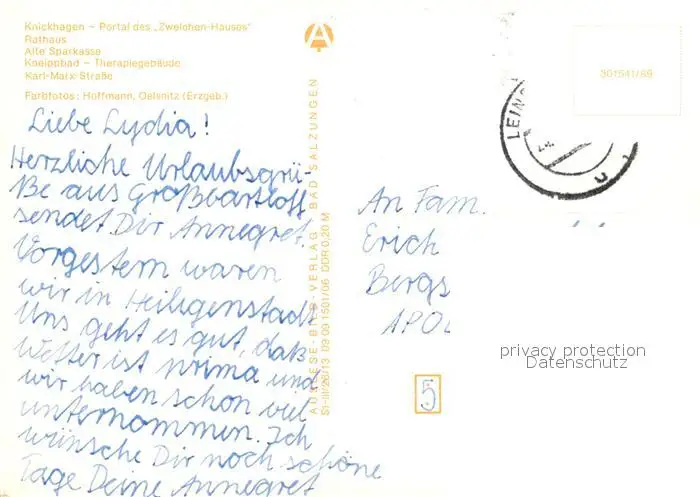 Knickhagen – Portal des „Zweichen-Hauses"
Rathaus
Alte Sparkasse
Kneippbad – Therapiegebäude
Karl-Marx-Straße
Farbfotos: Hoffmann, Oelsnitz (Erzgeb.)
Liebe Lydia!
Herzliche Urlaubsgrü-
ße aus Großbartloff
sendet Dir Annegret.
Vorgestern waren
wir in Heiligenstadt
Uns geht es gut, daß
Wetter ist prima und
wir haben schon viel
unternommen. Ich
wünsche Dir noch schöne
Tage Deine Annegret
AUSLESE-BILD-VERLAG · BAD SALZUNGEN
S1-III/26/13 09 09 1501/06 DDR 0,20 M
A
301541/89
LEIN
An Fam.
Erich
Bergs
APOL
5
privacy protection
Datenschutz